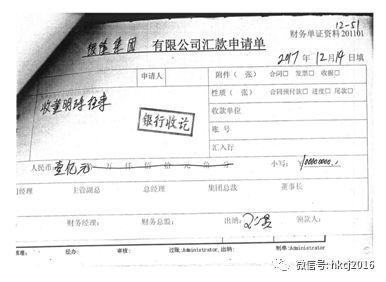 12-51
财务单证资料201101
银隆集团 有限公司汇款申请单
2017年12月14日填
申请人 附件(张) 合同□ 发票□ 收据□
性质(张) 合同预付款□ 进度□ 尾款□
收董明珠往来
银行收讫
收款单位
账号
汇入行
人民币:壹亿元 万仟佰拾元 小写:
经理 主管副总 总经理 集团总裁 董事长
财务经理: 财务总监: 出纳: 领款人:
核准: 经办: 审核: 过账:Administrator,出纳: 制单:Administrator
微信号: hkcj2016